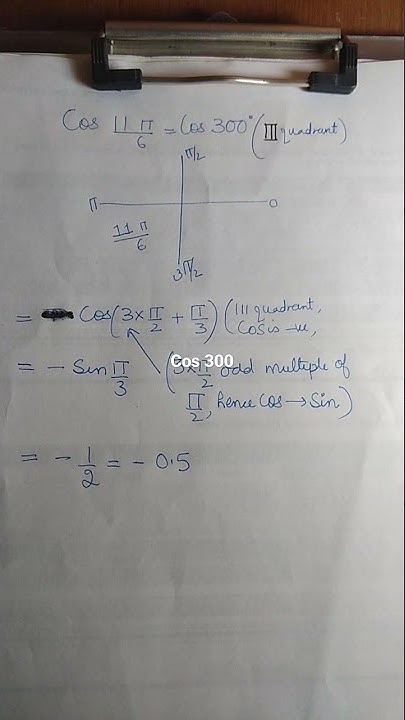 Cos 11 π/6 = Cos 300° (III quadrant)
π/2
π 0
11 π/6
3π/2
= Cos(3×π/2 + π/3) (III quadrant, Cos is -ve,
= - Sin π/3 (3×π/2 odd multiple of π/2, hence Cos → Sin)
Cos 300
= - 1/2 = - 0.5